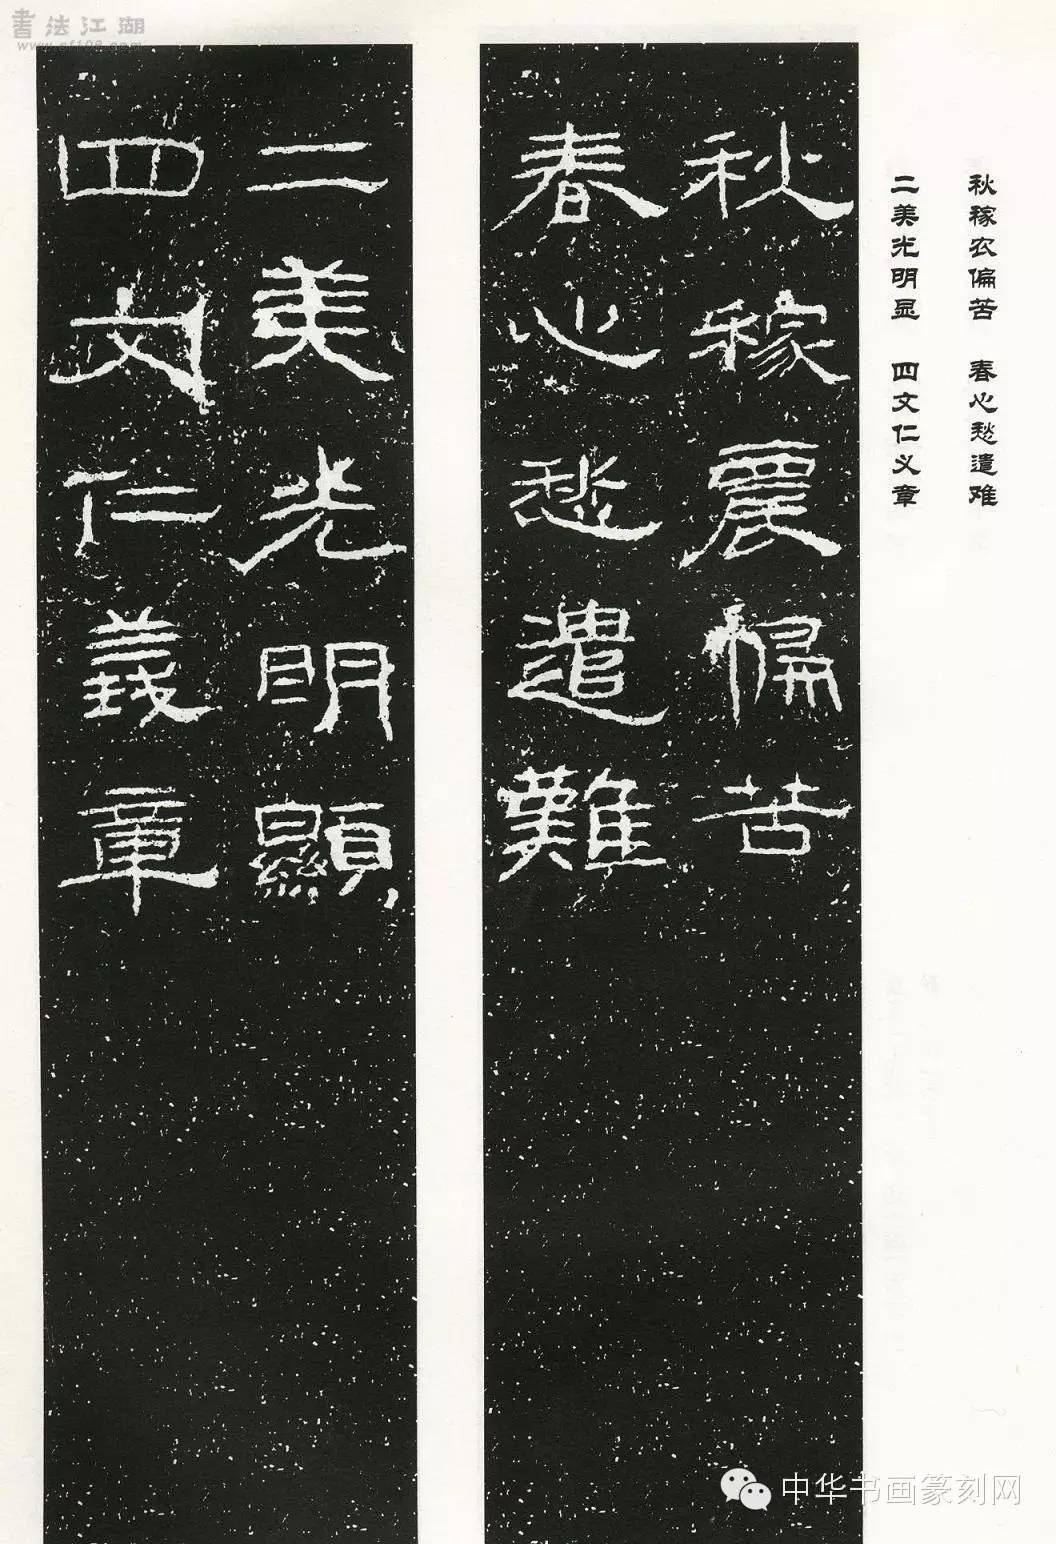 書法江湖
www.sf108.com
秋稼农偏苦 春心愁遣难
二美光明显 四文仁义章
秋稼農偏苦
春心愁遣難
二美光明顯
四文仁義章
中华书画篆刻网